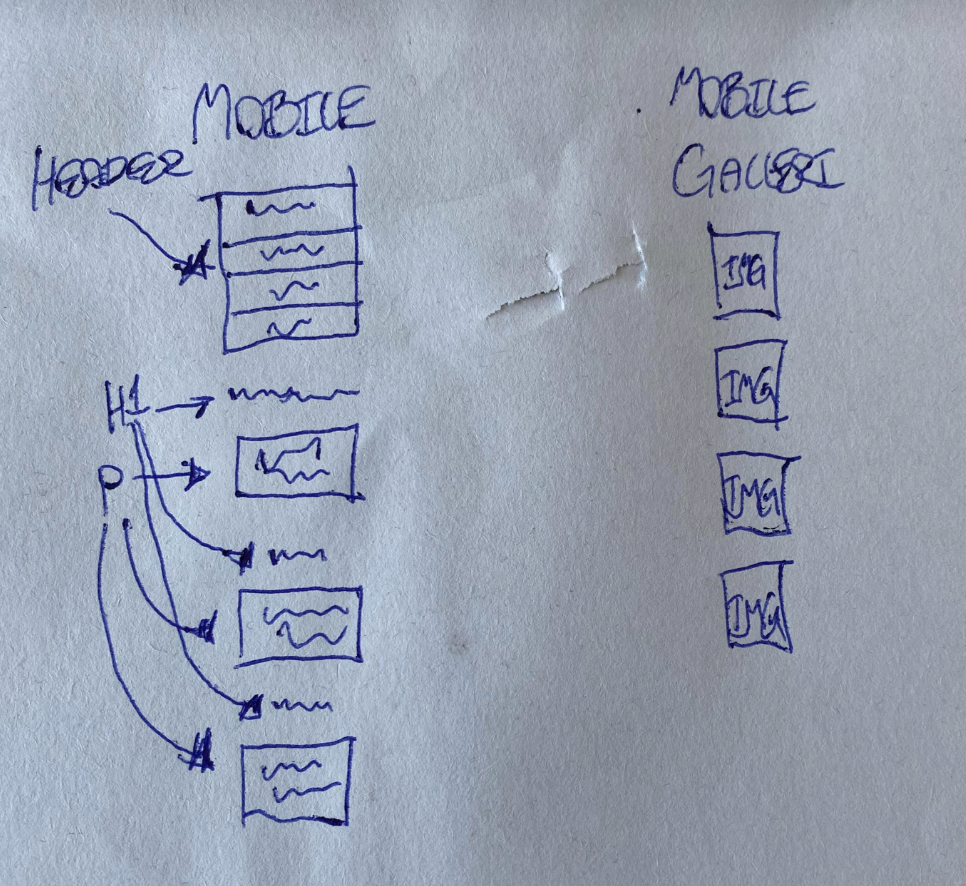 MOBILE
HEADER
H1
P
MOBILE
GALLERI
IMG
IMG
IMG
IMG